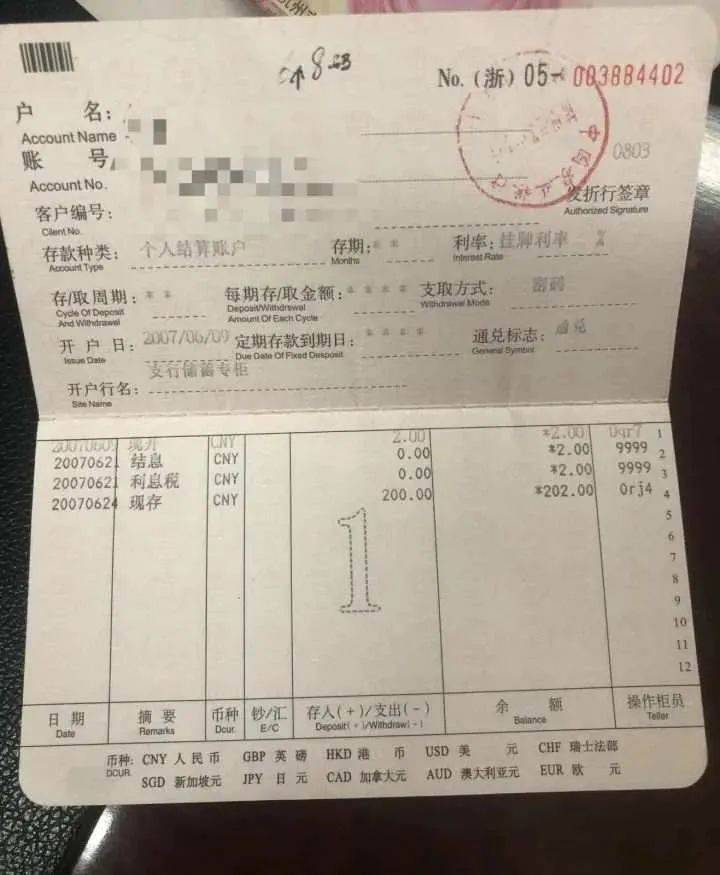 No. (浙) 05- 003884402
户 名:
Account Name
账 号
Account No.
0803
客户编号:
Client No.
发折行签章
Authorized Signature
存款种类: 个人结算账户 存期: * * 利率: 挂牌利率 %
Account Type Months Interest Rate
存/取周期: * * 每期存/取金额: * * * * 支取方式: 密码
Cycle Of Deposit And Withdrawal Deposit/Withdrawal Amount Of Each Cycle Withdrawal Mode
开 户 日: 2007/06/09 定期存款到期日: * * * * 通兑标志: 通兑
Issue Date Due Date Of Fixed Desposit General Symbol
开户行名: 支行储蓄专柜
Site Name
20070609 现开 CNY 2.00 *2.00 1
20070621 结息 CNY 0.00 *2.00 9999 2
20070621 利息税 CNY 0.00 *2.00 9999 3
20070624 现存 CNY 200.00 *202.00 0rj4 4
5
6
7
8
9
10
11
12
1
日 期 摘 要 币种 钞/汇 存入(+)/支出(-) 余 额 操作柜员
Date Remarks Dcur. E/C Deposit(+)/Withdraw(-) Balance Teller
币种: CNY 人 民 币 GBP 英 镑 HKD 港 币 USD 美 元 CHF 瑞士法郎
DCUR. SGD 新加坡元 JPY 日 元 CAD 加拿大元 AUD 澳大利亚元 EUR 欧 元